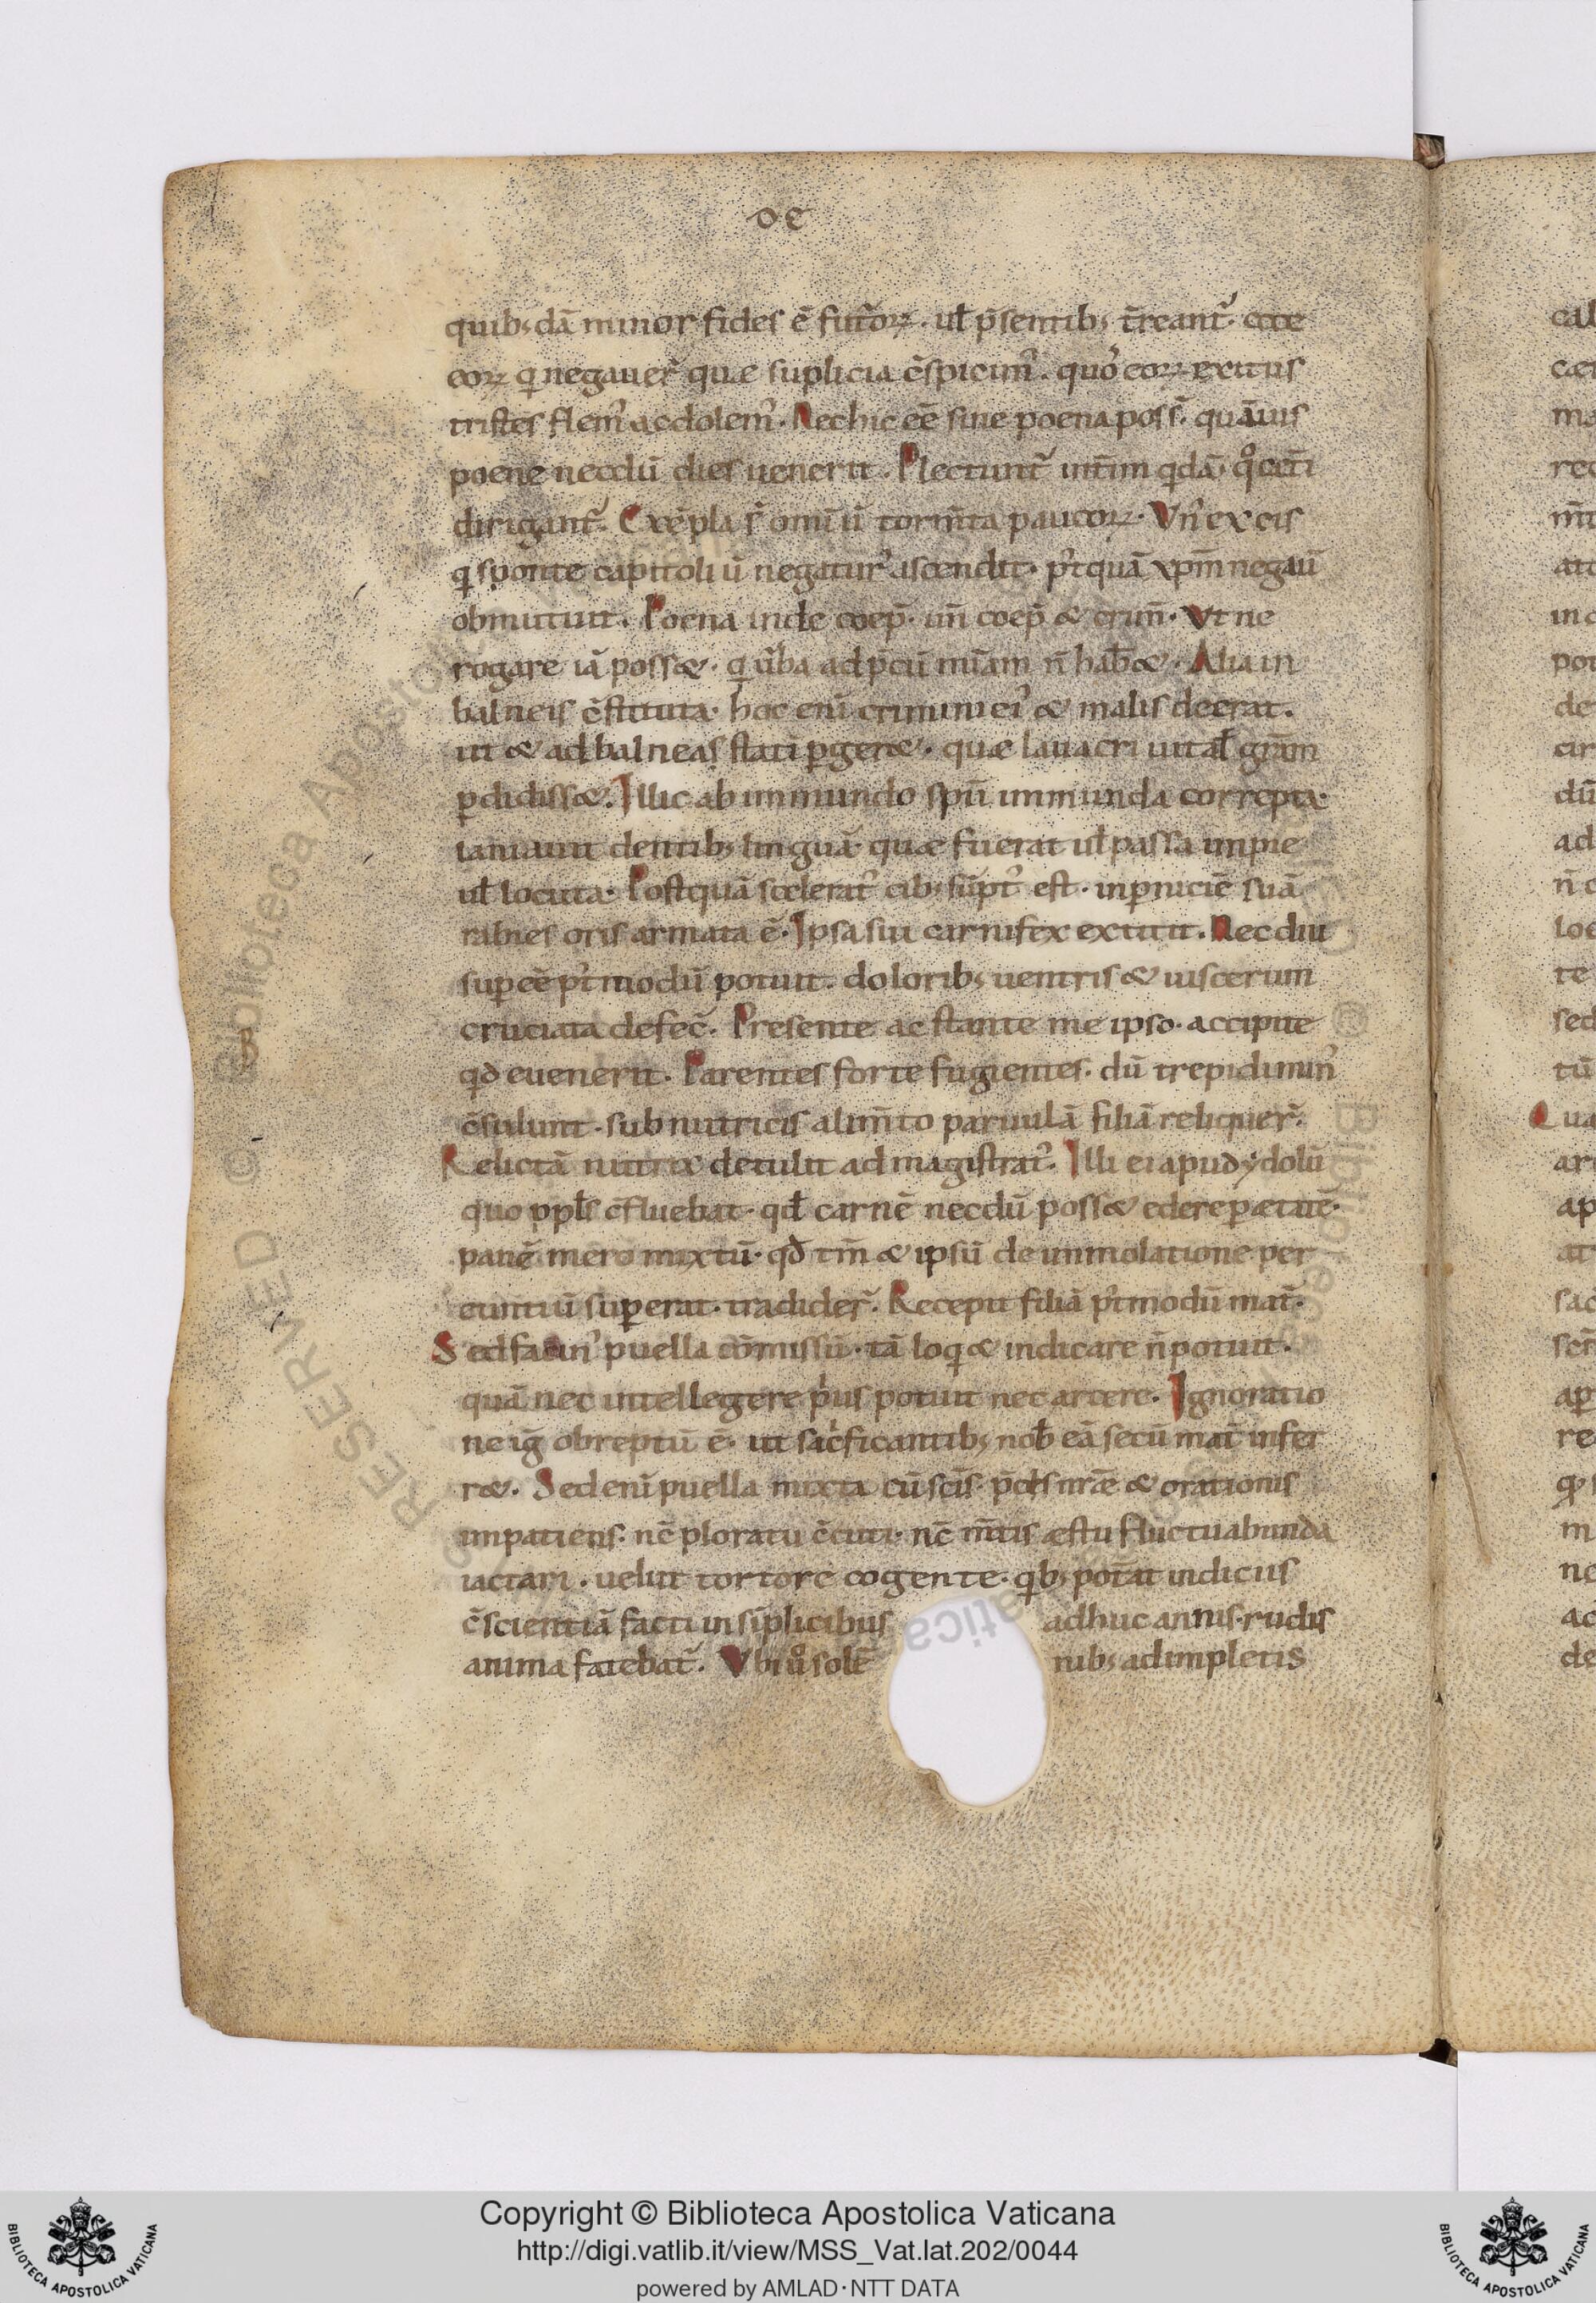 DE
quib; dā minor fides ē futōꝝ. ul̄ p̄sentib; t̄reant᷑. ecce
eoꝝ qi negauer᷑ quæ suplicia c̄spicim᷒. quo᷒ eoꝝ exitus
tristes flem᷒ ac dolem᷒. Nec hic eē sine poena poss᷑. quāuis
poene necdū dies uenerit. Plectunt᷑ int̄im qdā. qͦ cet̄i
dirigant᷑. Exēpla s᷑ omīū torm̄ta paucoꝝ. Vn᷒ ex eis
qi sponte capitoliū negatur᷒ ascendit. p᷒tquā xpm̄ negau̅
obmutuit. Poena inde coep̄. un̄ coep̄ & crim̄. Vt ne
rogare iā poss&. qi ūba ad p̄cū mīam n̄ hab&. Alia in
balneis c̄stituta. hoc enī crimini ei᷒ & malis deerat.
ut & ad balneas statī ꝑger&. quæ lauacri uital̄ grām
ꝑdidiss&. Illic ab immundo spū immunda correpta.
laniauit dentib; linguā. quæ fuerat ul̄ passa impie
ul̄ locuta. Postquā scelerat᷒ cib; sūpt᷒ est. in ꝑniciē suā
rabies oris armata ē. Ipsa sui carnifex extitit. Nec diu
suꝑ eē p᷒tmodū potuit. dolorib; uentris & uiscerum
cruciata defec̄. Presente ac stante me ipso. accipite
qđ euenerit. Parentes forte fugientes. dū trepidi nim᷒
c̄sulunt. sub nutricis alim̄to paruulā filiā reliquer᷑.
Relictā nutrix detulit ad magistrat᷒. Illi ei apud ydolū
quo ppl̄s c̄fluebat. qđ carnē necdū poss& edere ꝑ ætatē.
panē mero mixtū. qđ tm̄ & ipsū de immolatione per
euntiū suꝑerat. tradider᷑. Recepit filiā p᷒tmodū mat᷑.
Sed facin᷒ puella cōmissū. tā loqi & indicare n̄ potuit.
quā nec intellegere pi᷒us potuit nec arcere. Ignoratio
ne ig̃ obreptū ē. ut saci᷒ficantib; nob̄ eā secū mat̄ infer
r&. Sed enī puella mixta cū sc̄is. p̄cis nr̄æ & orationis
impatiens. nc̄ ploratu c̄cuti. nc̄ m̄tis æstu fluctuabunda
iactari. uelut tortore cogente. qib; pot̄at indiciis
c̄scientiā facti in sīplicibus adhuc annis. rudis
anima fatebat᷑. Vbi ūͦ solē nib; adimpletis
Copyright © Biblioteca Apostolica Vaticana
http://digi.vatlib.it/view/MSS_Vat.lat.202/0044
powered by AMLAD·NTT DATA